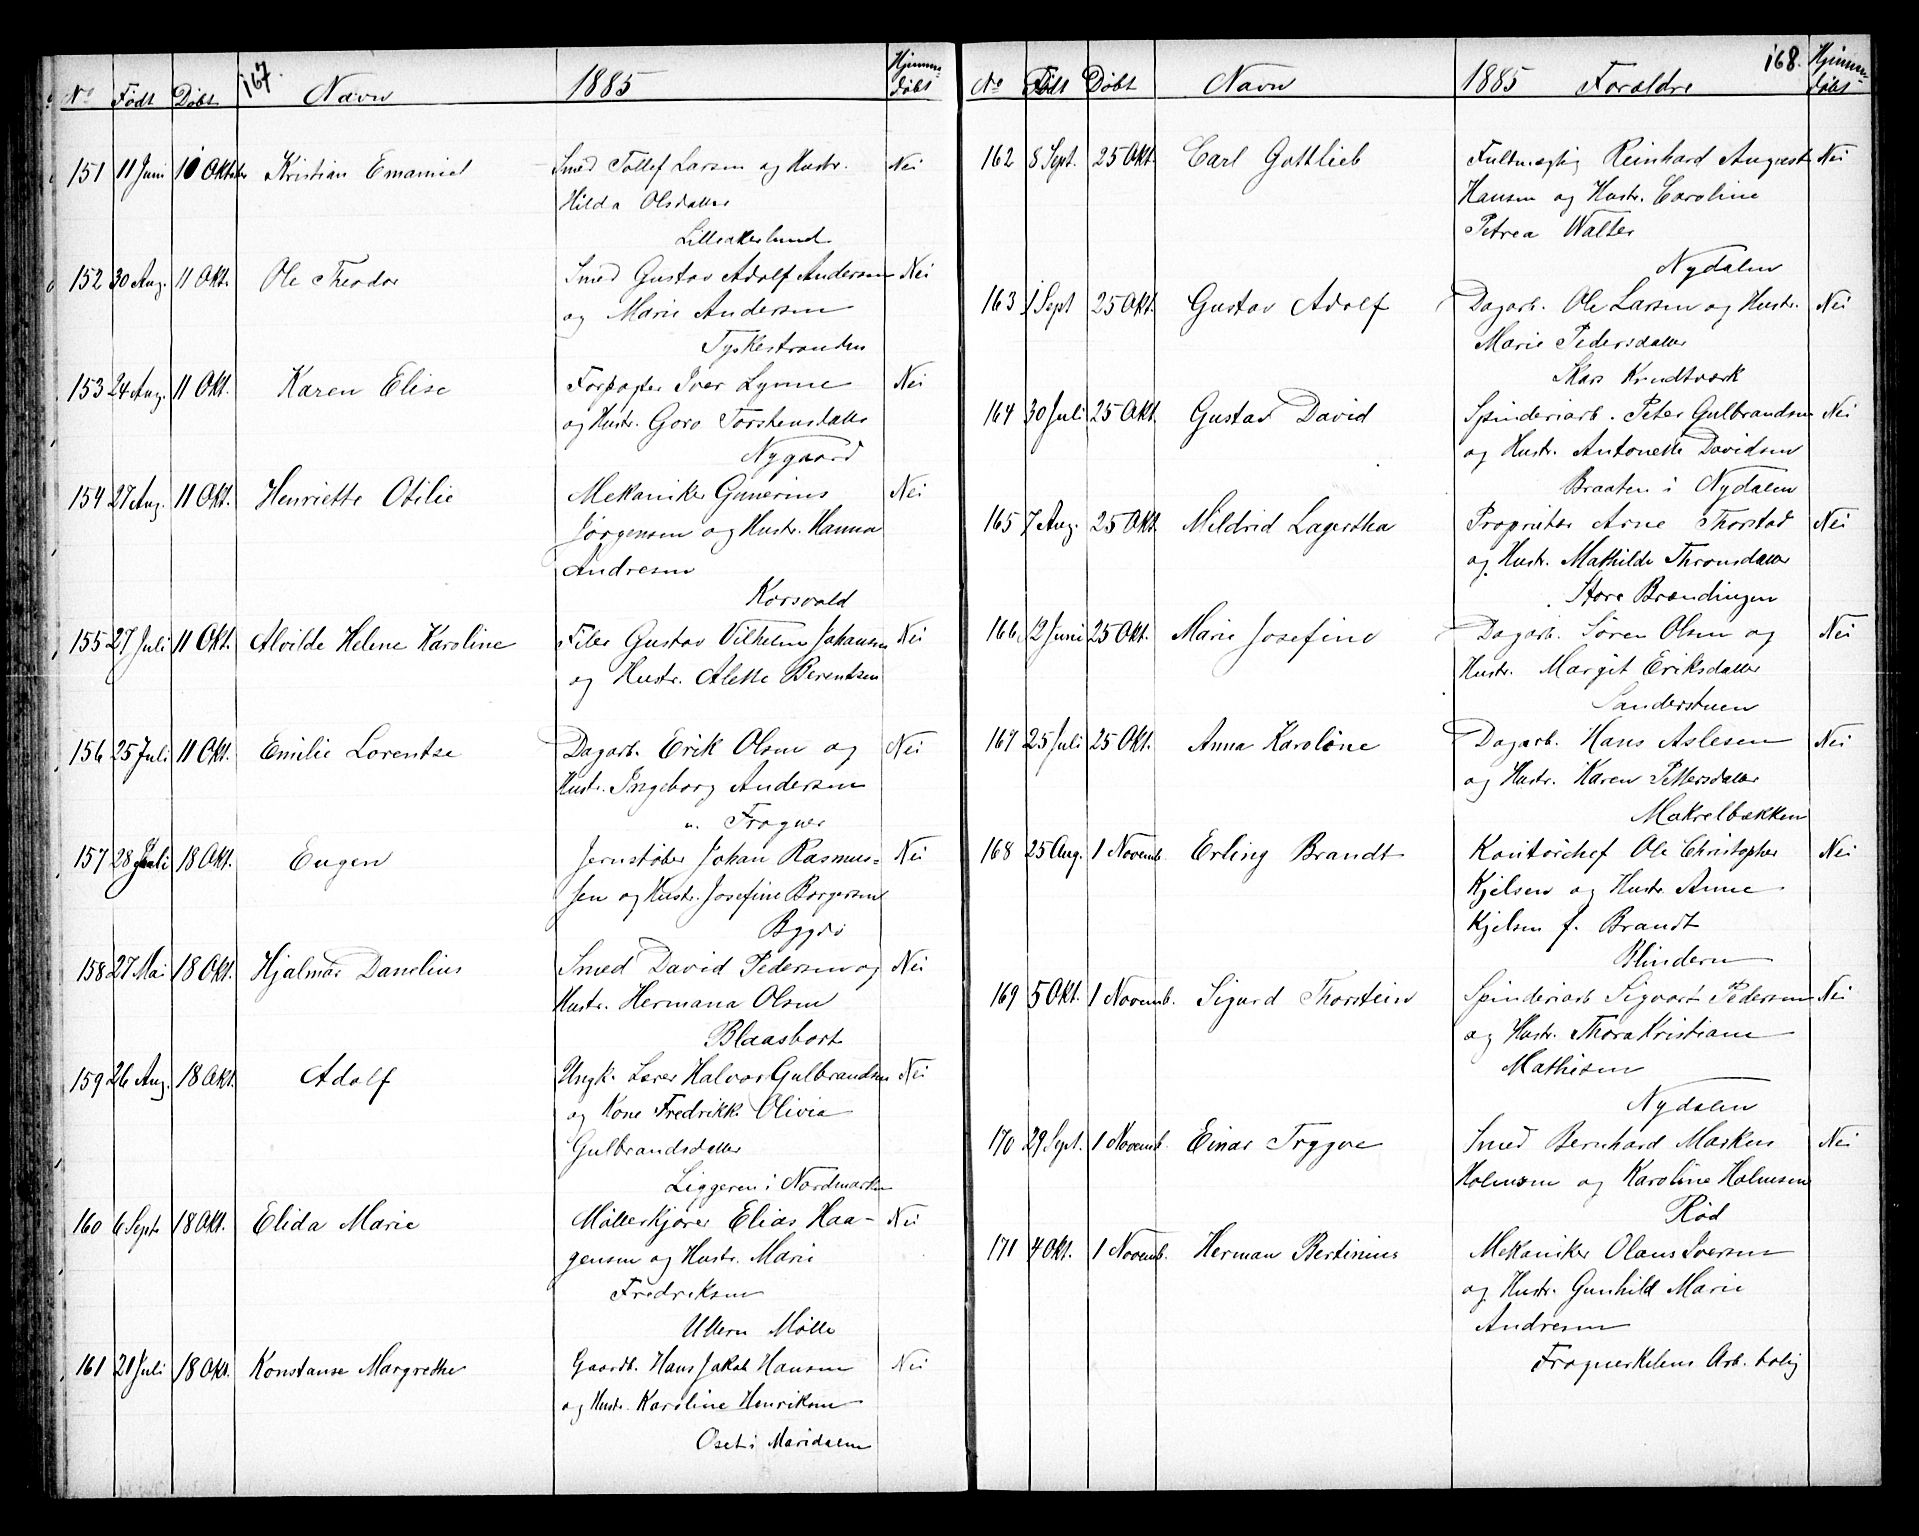 No Født Døbt 167. Navn 1885 Hjemme-døbt
151 11 Juni 10 Oktober Kristian Emanuel Smed Tollef Larsen og Hustr. Nei
Hilda Olsdatter
Lilleakerlund
152 30 Aug. 11 Okt. Ole Theodor Smed Gustav Adolf Andersen Nei
og Marie Andersen
Tyskestranden
153 24 Aug. 11 Okt. Karen Elise Forpagter Iver Lynne Nei
og Hustr. Goro Torstensdatter
Nygaard
154 27 Aug. 11 Okt. Henriette Otilie Mekaniker Gunerius Nei
Jørgensen og Hustr. Hanna
Andresen
Korsvold
155 27 Juli 11 Okt. Alvilde Helene Karoline Filer Gustav Vilhelm Johansen Nei
og Hustr. Alette Berentsen
156 25 Juli 11 Okt. Emilie Lorentse Dagarb. Erik Olsen og Nei
Hustr. Ingeborg Andersen
Frogner
157 28 Juli 18 Okt. Eugen Jernstøber Johan Rasmus- Nei
sen og Hustr. Josefine Borgersen
Bygdø
158 27 Mai 18 Okt. Hjalmar Danelius Smed David Pedersen og Nei
Hustr. Hermana Olsen
Blaasbort
159 26 Aug. 18 Okt. Adolf Ungk. Lærer Halvor Gulbrandsen Nei
og Kone Fredrikke Olivia
Gulbrandsdatter
Liggeren i Nordmarken
160 6 Sept 18 Okt. Elida Marie Møllerkjører Elias Haa- Nei
gensen og Hustr. Marie
Fredriksen
Ullern Mølle
161 21 Juli 18 Okt. Konstanse Margrethe Gaardb. Hans Jakob Hansen Nei
og Hustr. Karoline Henriksen
Oset i Maridalen
No Født Døbt Navn 1885 Forældre 168. Hjemme-døbt
162 8 Sept. 25 Okt. Carl Gottlieb Fuldmægtig Reinhard August Nei
Hansen og Hustr. Caroline
Petrea Walter
Nydalen
163 1 Sept 25 Okt. Gustav Adolf Dagarb. Ole Larsen og Hustr. Nei
Marie Pedersdatter
Skars Krudtværk
164 30 Juli 25 Okt. Gustav David Spinderiarb. Peter Gulbrandsen Nei
og Hustr. Antonette Davidsen
Braaten i Nydalen
165 7 Aug. 25 Okt. Mildrid Lagertha Proprietær Arne Thorstad Nei
og Hustr. Mathilde Thronsdatter
Store Brændingen
166 12 Juni 25 Okt. Marie Josefine Dagarb. Søren Olsen og Nei
Hustr. Margit Eriksdatter
Sanderstuen
167 25 Juli 25 Okt. Anna Karoline Dagarb. Hans Aslesen Nei
og Hustr. Karen Pettersdatter
Makrelbækken
168 25 Aug. 1 Novemb. Erling Brandt Kontorchef Ole Christopher Nei
Kjelsen og Hustr. Anne
Kjelsen f. Brandt
Blindern
169 5 Okt. 1 Novemb. Sigurd Thorstein Spinderiarb Sigvart Pedersen Nei
og Hustr. Thora Kristiane
Mathisen
Nydalen
170 29 Sept. 1 Novemb. Einar Trygve Smed Bernhard Markus Nei
Holmsen og Karoline Holmsen
Rød
171 4 Okt. 1 Novemb. Herman Bertinius Mekaniker Olaus Iversen
og Hustr. Gunhild Marie
Andresen
Frognerkilens Arb. bolig